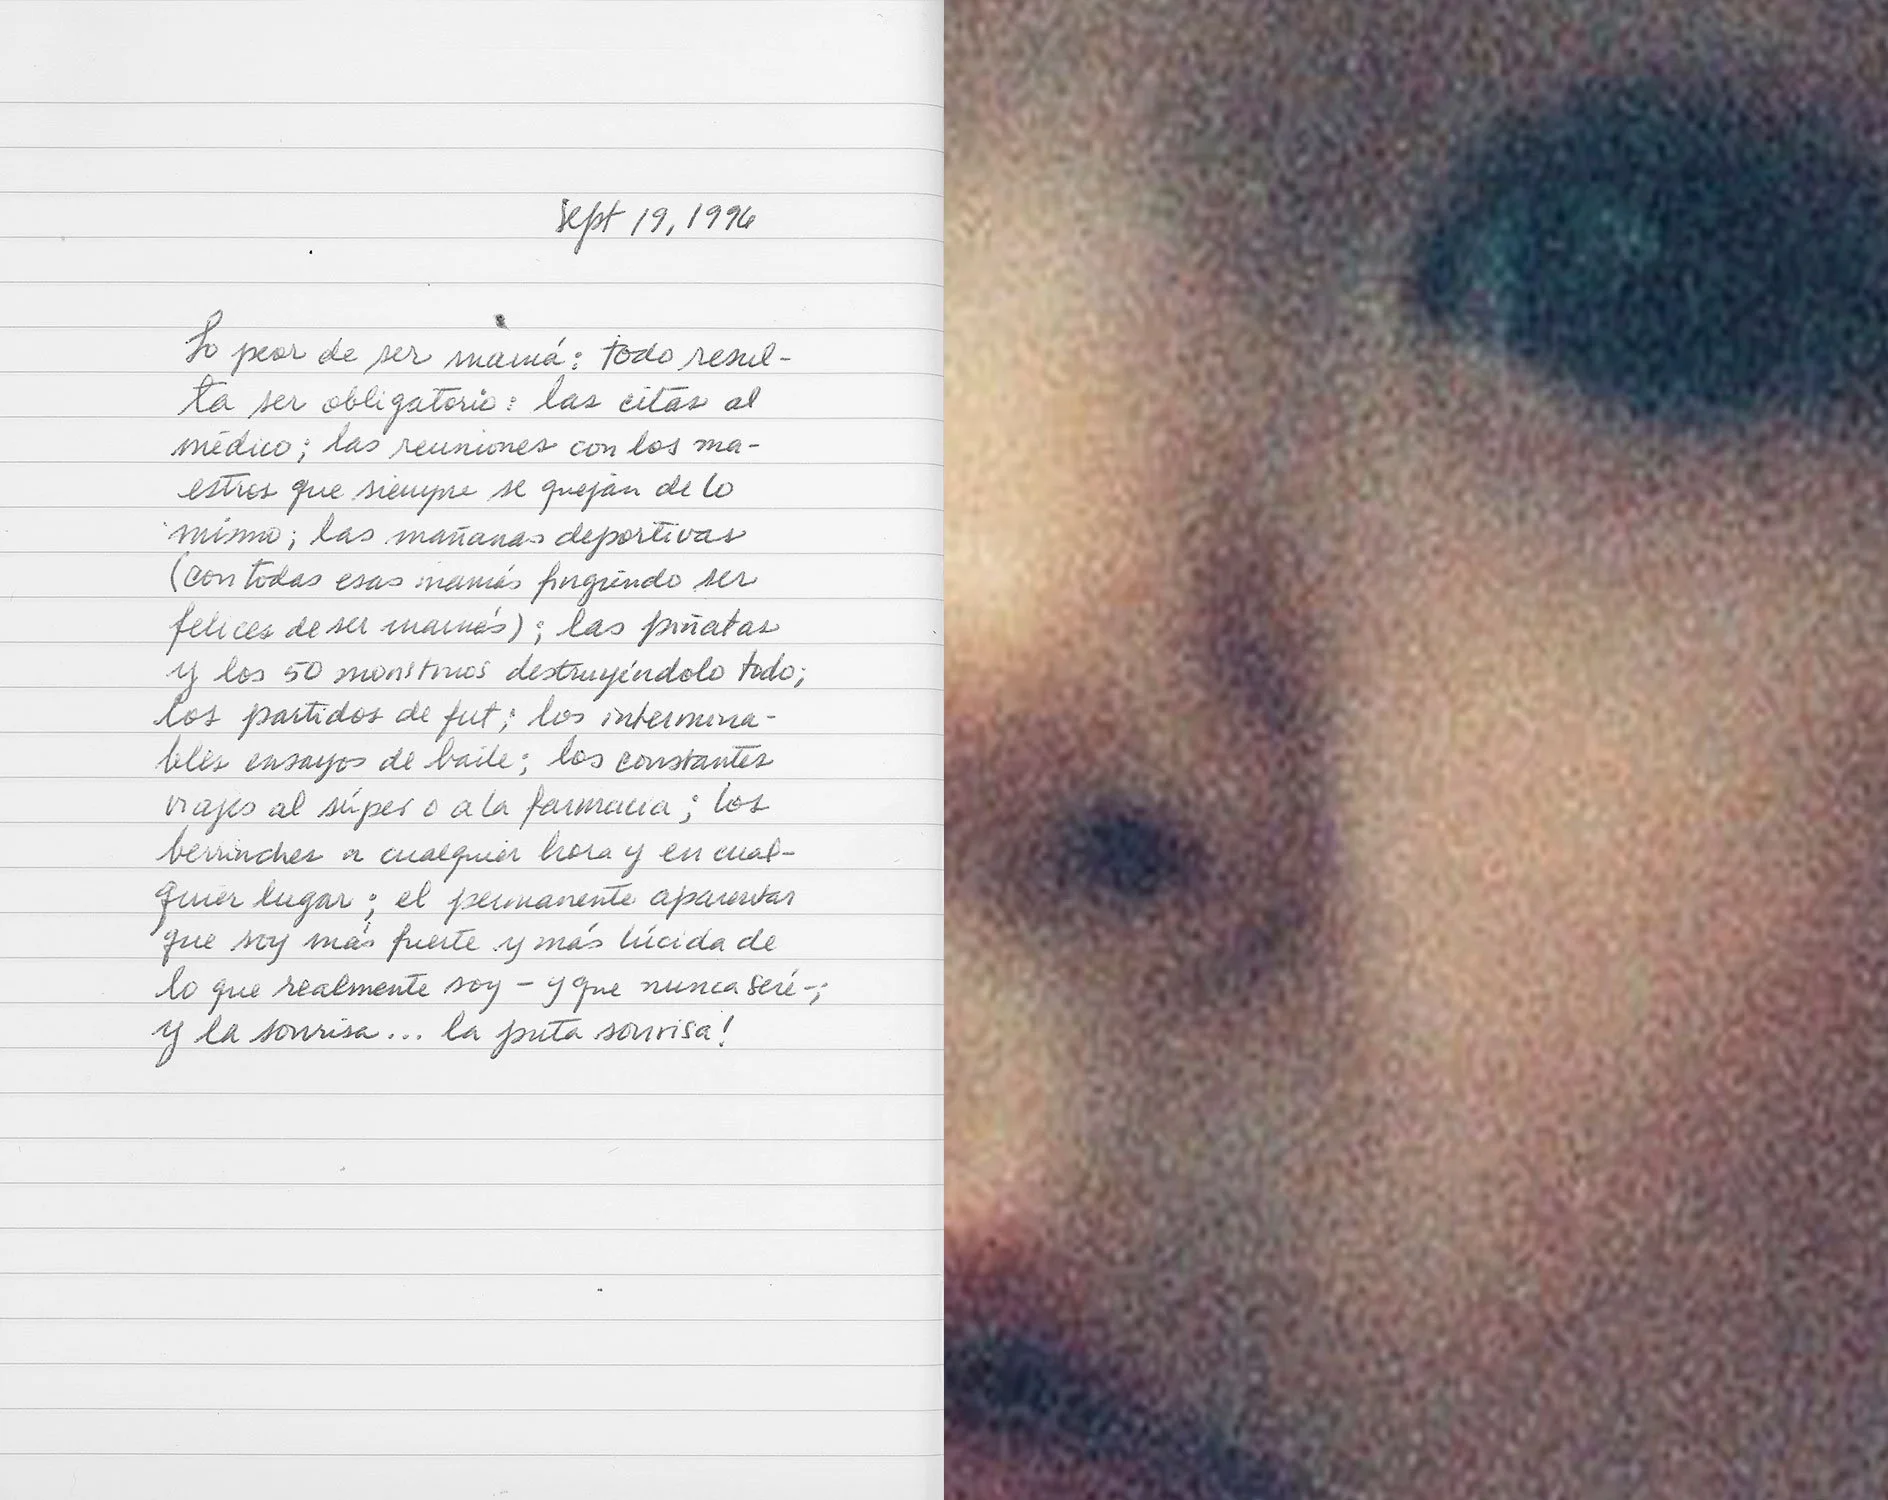 Sept 19, 1996
Lo peor de ser mamá: todo resul-
ta ser obligatorio: las citas al
médico; las reuniones con los ma-
estros que siempre se quejan de lo
mismo; las mañanas deportivas
(con todas esas mamás fingiendo ser
felices de ser mamás); las piñatas
y los 50 monstruos destruyéndolo todo;
los partidos de fut; los intermina-
bles ensayos de baile; los constantes
viajes al súper o a la farmacia; los
berrinches a cualquier hora y en cual-
quier lugar; el permanente aparentar
que soy más fuerte y más lúcida de
lo que realmente soy - y que nunca seré-;
y la sonrisa... la puta sonrisa!